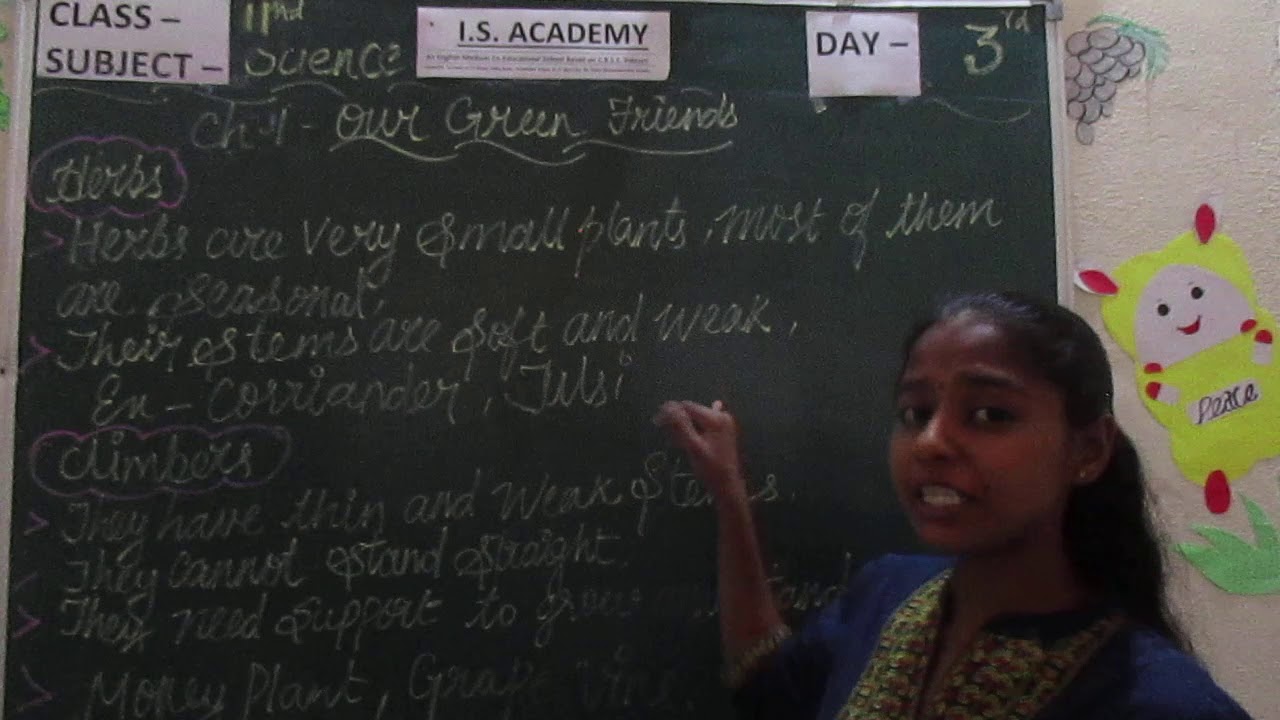 CLASS – IInd
SUBJECT – Science
I.S. ACADEMY
DAY – 3rd
Ch-1 - Our Green Friends
Herbs
> Herbs are very small plants, most of them
are seasonal,
> Their stems are soft and weak,
Ex - Corriander, Tulsi
Climbers
> They have thin and weak stems.
They cannot stand straight.
> They need support to grow stand
> Money Plant, Grape vine,
Peace